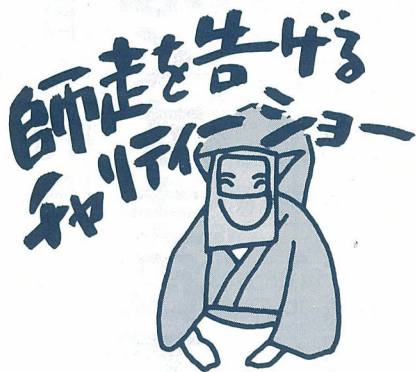 師走を告げる
チャリティーショー